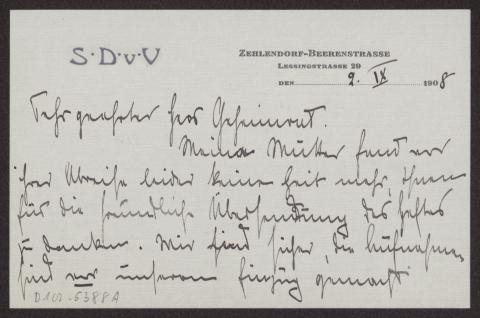 S·D·v·V
ZEHLENDORF-BEERENSTRASSE
LESSINGSTRASSE 29
DEN 2. IX 1908
Sehr geehrter Herr Geheimrat.
Meine Mutter fand vor
ihrer Abreise leider keine Zeit mehr, Ihnen
für die freundliche Übersendung des Heftes
zu danken. Wir sind sicher, die Aufnahmen
sind vor unserem Einzug gemacht
D 102-5388A